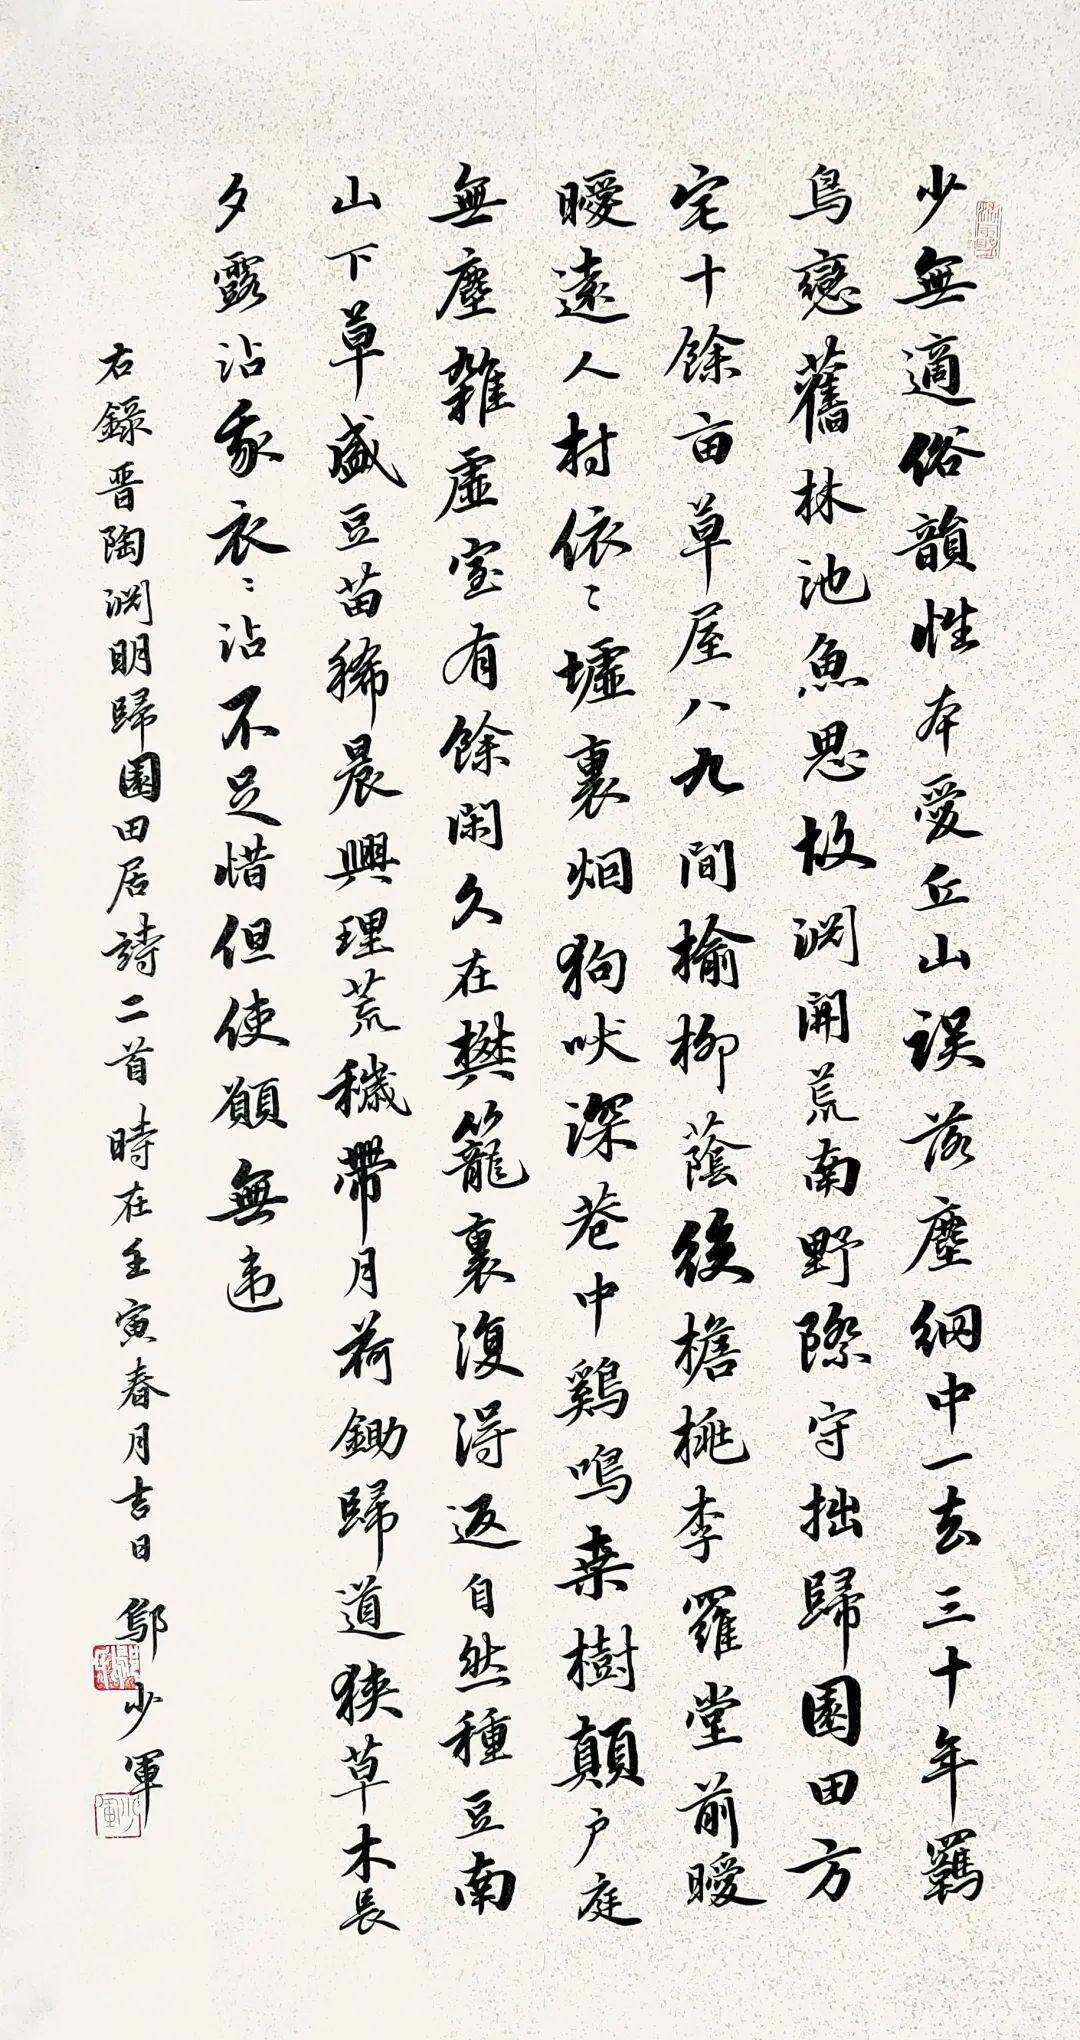 少無適俗韻性本愛丘山誤落塵網中一去三十年羈
鳥戀舊林池魚思故渊開荒南野際守拙歸園田方
宅十餘亩草屋八九間榆柳蔭後檐桃李羅堂前曖
曖遠人村依〻墟裏烟狗吠深巷中鷄鳴桒樹顛户庭
無塵雜虛室有餘閑久在樊籠裏復得返自然種豆南
山下草盛豆苗稀晨興理荒穢帶月荷鋤歸道狹草木長
夕露沾我衣〻沾不足惜但使願無违
右録晋陶渊明歸園田居詩二首時在壬寅春月吉日鄔少軍